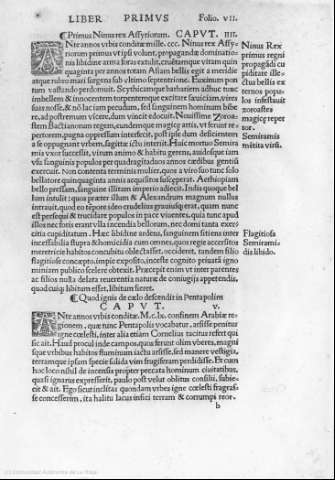 LIBER PRIMUS Folio. VII.
¶ Primus Ninus rex Assyriorum. CAPVT. IIII.
ANte annos vrbis conditæ mille. ccc. Ninus rex Assy
riorum primus vt ipsi volunt, propagandæ dominatio
nis libidine arma foras extulit, cruẽtamque vitam quin
quaginta per annos totam Asiam bellis egit a meridie
atque rubro mari surgens sub vltimo septentrione. Euxinum pon
tum vastando perdomuit. Scythicamque barbariem adhuc tunc
imbellem & innocentem torpentemque excitare sæuiciam, vires
suas nosse, & nõ lac iam pecudum, sed sanguinem hominum bibe
re, ad postremum vicere, dum vincit edocuit. Nouissime Zoroa
strem Bactrianorum regem, eundemque magicæ artis, vt ferunt re
pertorem, pugna oppressum interfecit, post ipse dum deficientem
a se oppugnat vrbem, sagittæ ictu interiit. Huic mortuo Semira
mis vxor successit, virum animo & habitu gerens,
sanguinis populos per quadragintaduos annos cædibus gentiũ
exercuit. Non contenta terminis mulier, quos a viro suo tunc solo
bellatore quinquaginta annis acquisitos susceperat. Aethiopiam
bello pressam, sanguine illitam imperio adiecit. Indis quoque bel
lum intulit: quo præter illum & Alexandrum magnum nullus
intrauit, quod eo tẽpore ideo crudelius grauiusque erat, quam nunc
est persequi & trucidare populos in pace viuentes, quia tunc apud
illos nec foris erant vlla incendia bellorum, nec domi tanta exerci
tia cupiditatum. Hæc libidine ardens, sanguinem sitiens inter
incessabilia stupra & homicidia cum omnes, quos regie accersitos
meretricie habitos concubitu oblectasset, occideret, tandem filio
flagitiose concæpto, impie exposito, inceste cognito priuatã igno
miniam publico scelere obtexit. Præcepit enim vt inter parentes
ac filios nulla delata reuerentia naturæ de coniugiis appetendis,
quod cuique libitum esset, libitum fieret.
¶ Quod ignis de cælo descendit in Pentapolim
CAPVT. V.
ANte annos vrbis conditæ. M.c.lx. confinem Arabiæ re
gionem, quæ tunc Pentapolis vocabatur, arsisse penitus
igne cœlesti, inter alia etiam Cornelius tacitus refert qui
sic ait. Haud procul inde campos, quos ferunt olim vberes, magnis
que vrbibus habitos fluminum iactu arsisse, sed manere vestigia,
terramque ipsam specie solida vim frugiferam perdidisse. Et cum
hoc loco nihil de incensis propter peccata hominum ciuitatibus,
quasi ignarus expressisset, paulo post velut oblitus consilii, subie
cit & ait. Ego sicut inclitas quondam vrbes igne cœlesti flagras
se concesserim, ita halitu lacus infici terram & corrumpi reor.
b
Ninus Rex
primus regni
propagãdi cu
piditate ille
ctus bellis ex
ternos popu
los infestauit
zoroastes
magicæ reper
tor.
Semiramis
mitita virũ.
Flagitiosa
Semirami
dis libido.